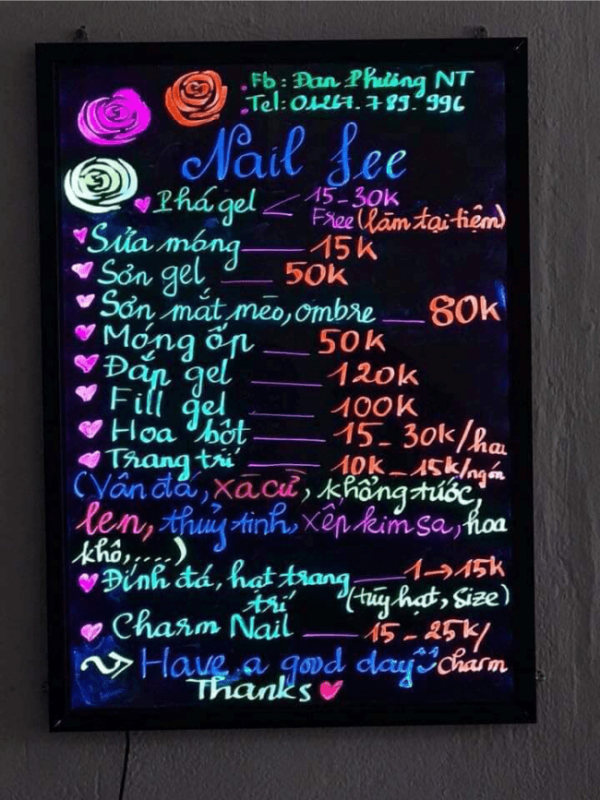 Fb: Đan Phường NT
Tel: 01267.789.996
Nail fee
Phá gel < 15-30k
Free (làm tại tiệm)
Sửa móng 15k
Sơn gel 50k
Sơn mắt mèo, ombre 80k
Móng ốp 50k
Đắp gel 120k
Fill gel 100k
Hoa bột 15-30k/hoa
Trang trí 10k-15k/ngón
(Vân đá, xà cừ, khổng tước,
len, thuỷ tinh, xếp kim sa, hoa
khô,....)
Đính đá, hạt trang trí 1→15k
(tuỳ hạt, size)
Charm Nail 15-25k/charm
~> Have a good day ^^
Thanks